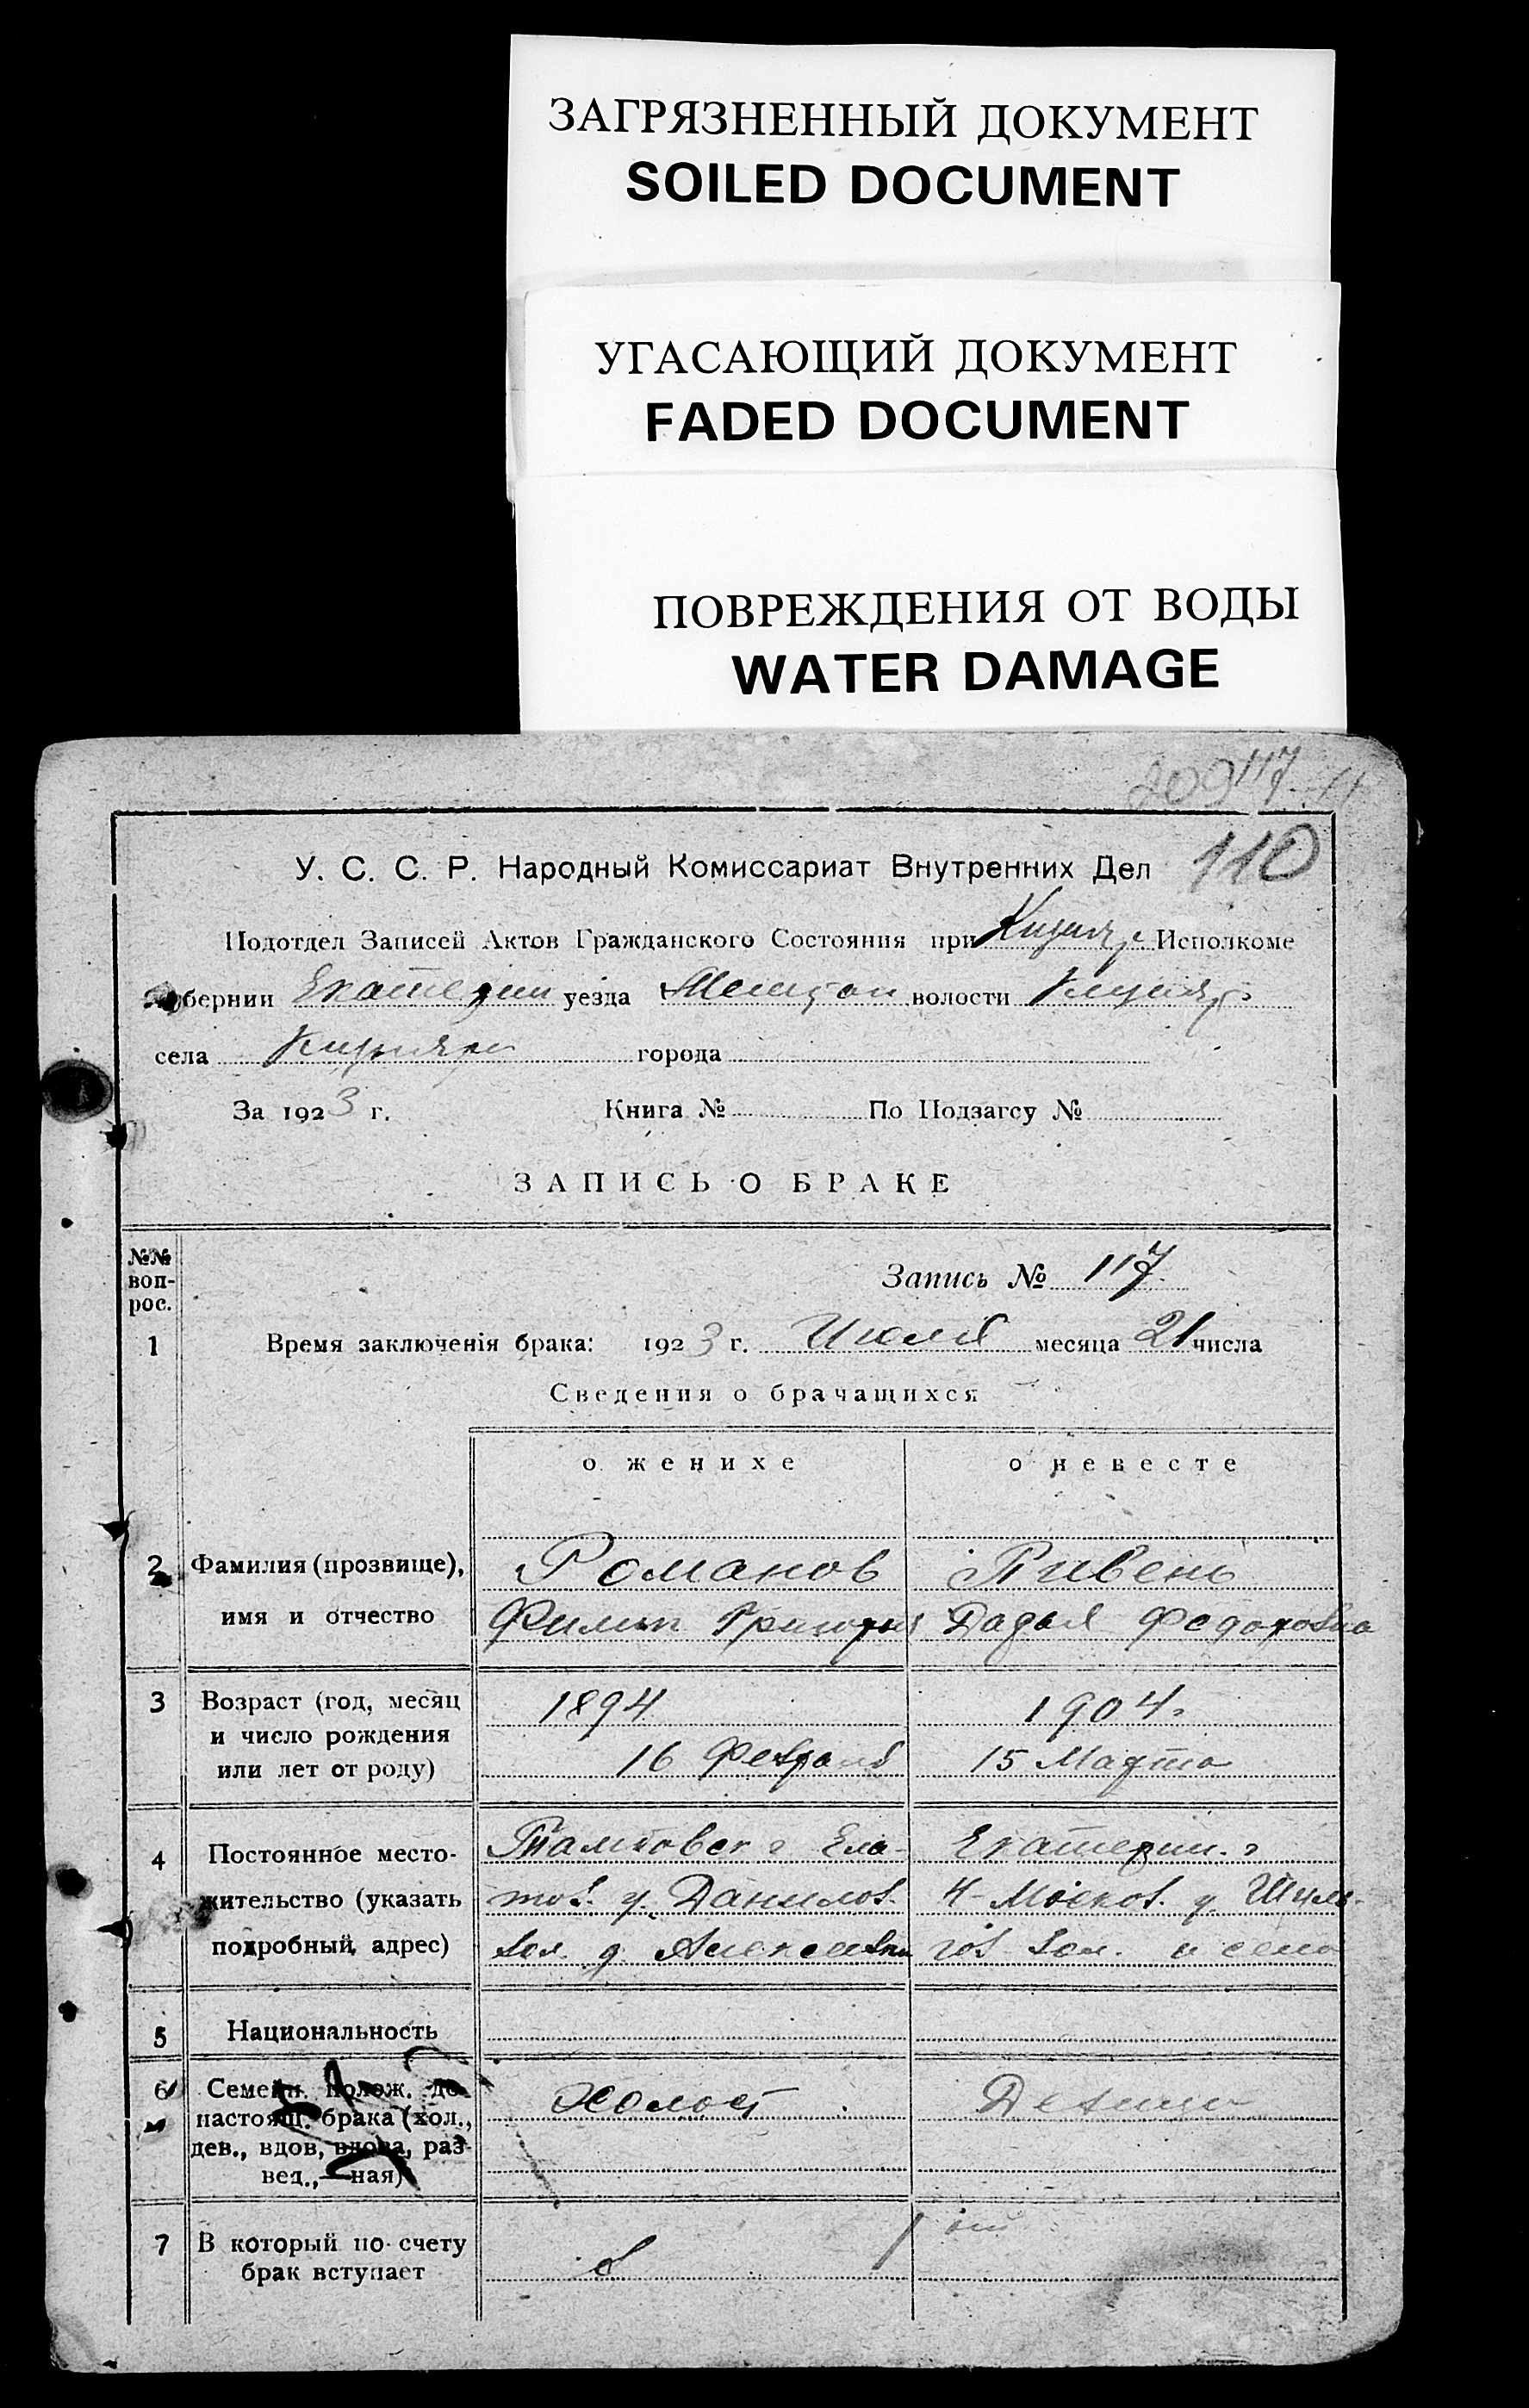 ЗАГРЯЗНЕННЫЙ ДОКУМЕНТ
SOILED DOCUMENT
УГАСАЮЩИЙ ДОКУМЕНТ
FADED DOCUMENT
ПОВРЕЖДЕНИЯ ОТ ВОДЫ
WATER DAMAGE
209 117
110
У. С. С. Р. Народный Комиссариат Внутренних Дел
Подотдел Записей Актов Гражданского Состояния при Исполкоме
бернии Екатерин уезда волости
села города
За 1923 г. Книга № По Подзагсу №
ЗАПИСЬ О БРАКЕ
№№ воп-
рос.
Запись № 117
1 Время заключенія брака: 1923 г. Июля месяца 21 числа
Сведения о брачащихся
о женихе о невесте
2 Фамилия (прозвище), Романов Пивень
имя и отчество Филип Федоровна
3 Возраст (год, месяц 1894 1904
и число рождения
или лет от роду) 16 Февраля 15 Марта
4 Постоянное место- Тамбовск г Ела- Екатерин. г
жительство (указать тов. у. Данилов. Москов. у.
подробный адрес) вол. д. вол. и село
5 Национальность
6 Семейн. полож. до
настоящ. брака (хол., Холост Девица
дев., вдов, вдова, раз-
вед.,—ная)
7 В который по счету
брак вступает